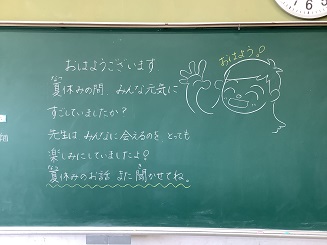 おはようございます
夏休みの間、みんな元気に
すごしていましたか？
先生は みんなに会えるのを とっても
楽しみにしていましたよ！
夏休みのお話 また聞かせてね。
おはよう！